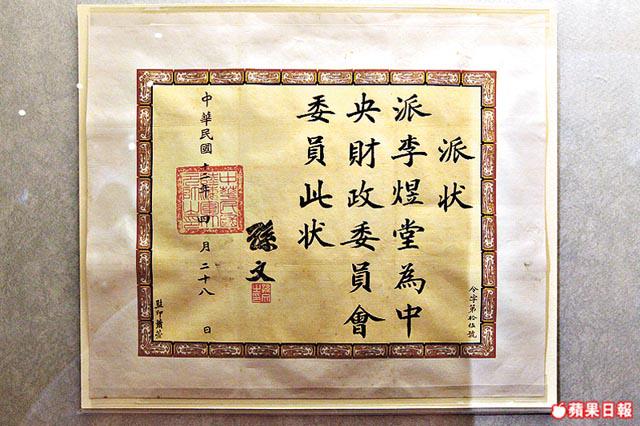 派状
派李煜堂為中
央財政委員會
委員此状
孫文
中華民國十二年四月二十八日
令字第拾伍號
監印蕭萱
蘋果日報